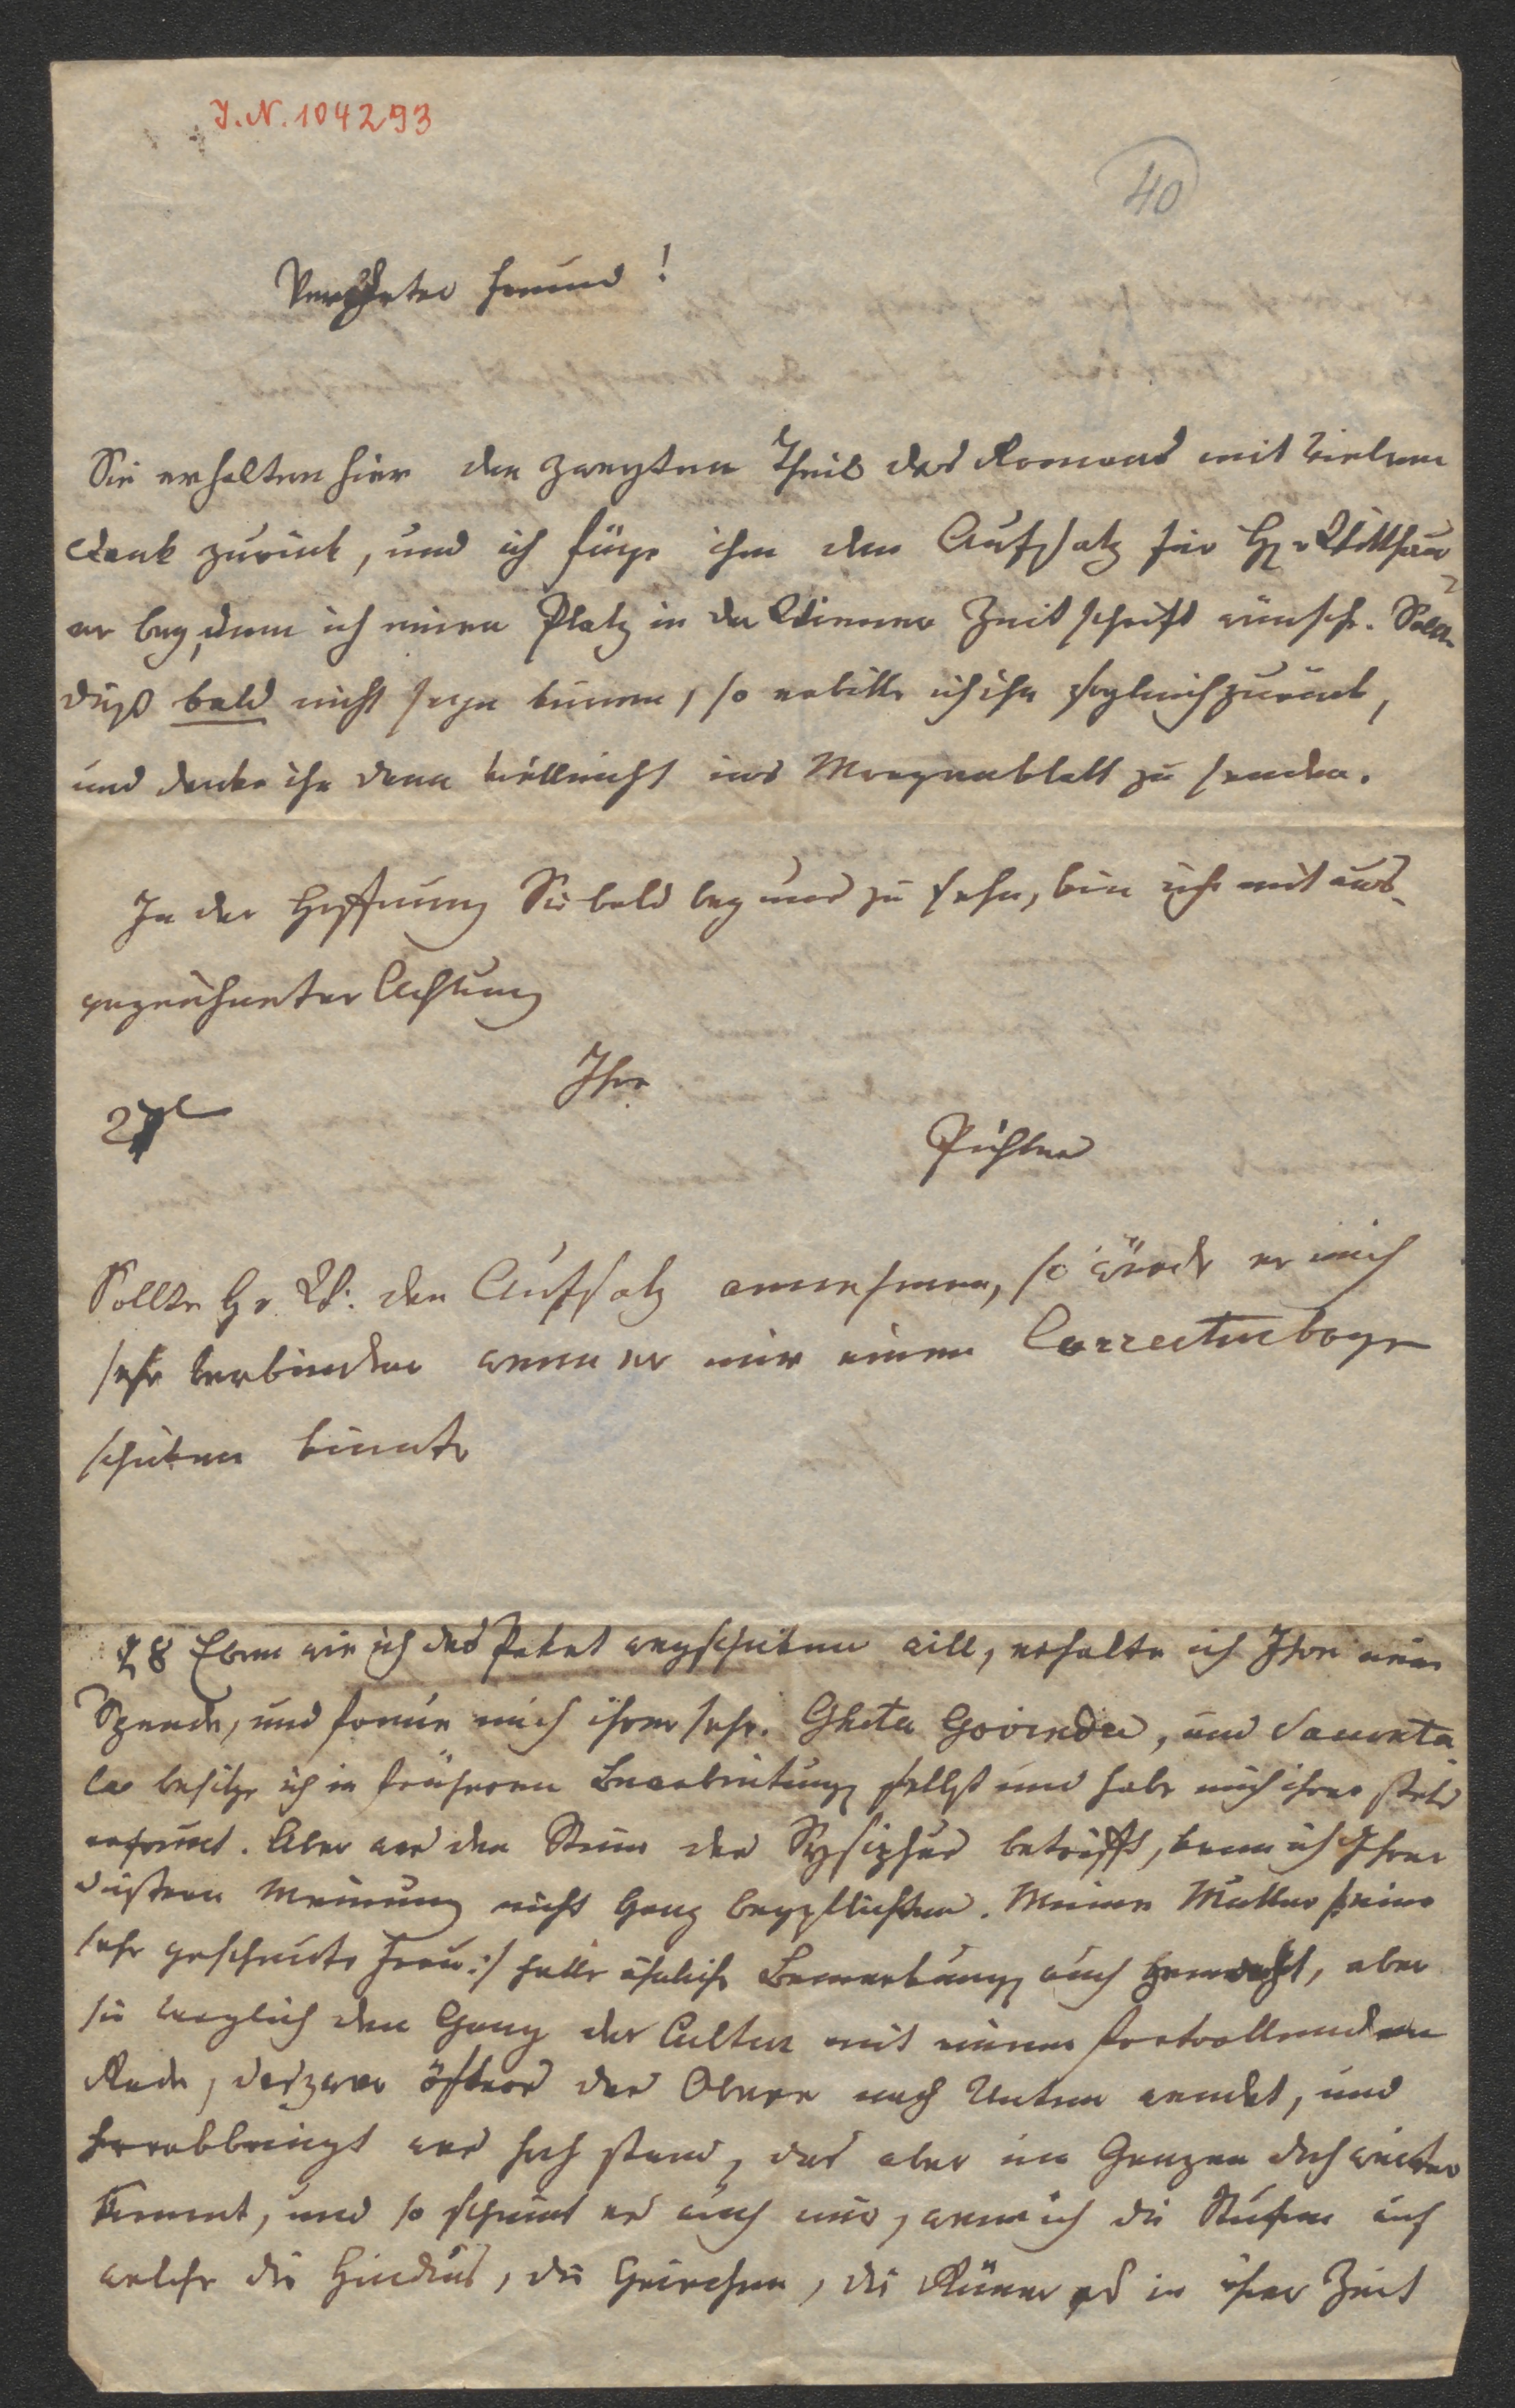 J.N. 104293
40
Verehrter Freund!
Sie erhalten hier den zweyten Theil des Romans mit vielem
Dank zurück, und ich füge ihm den Aufsatz für H. v Witthau¬
er bey, dem ich einen Platz in der Wiener Zeitschrift wünsche. Sollte
dieß bald nicht seyn können, so erbitte ich ihn sogleich zurück,
und denke ihn dann vielleicht ins Morgenblatt zu senden.
In der Hoffnung Sie bald bey uns zu sehn, bin ich mit aus¬
gezeichneter Achtung
Ihre
27t
Pichler
Sollte Hr. W. den Aufsatz annehmen, so würde er mich
sehr verbinden wenn er mir einen Correcturbogen
schicken könnte
28 Eben wie ich das Paket wegschicken will, erhalte ich Ihre neue
Spende, und freue mich ihrer sehr. Ghita Govinda, und Sacunta¬
la besitze ich in früheren Bearbeitungen selbst und habe mich ihrer stets
erfreut. Aber was den Stein des Sysiphus betrifft, kann ich Ihrer
düstern Meinung nicht ganz beypflichten. Meine Mutter /:eine
sehr gescheute Frau:/ hatte ähnliche Bemerkungen auch gemacht, aber
sie verglich den Gang der Cultur mit einem fortrollenden
Rade, das zwar öfters das Obere nach Unten wendet, und
herabbringt was hoch stand, das aber im Ganzen doch weiter
kommt, und so scheint es auch mir, wenn ich die Stufen auf
welche die Hindus, die Griechen, die Römer es in ihrer Zeit